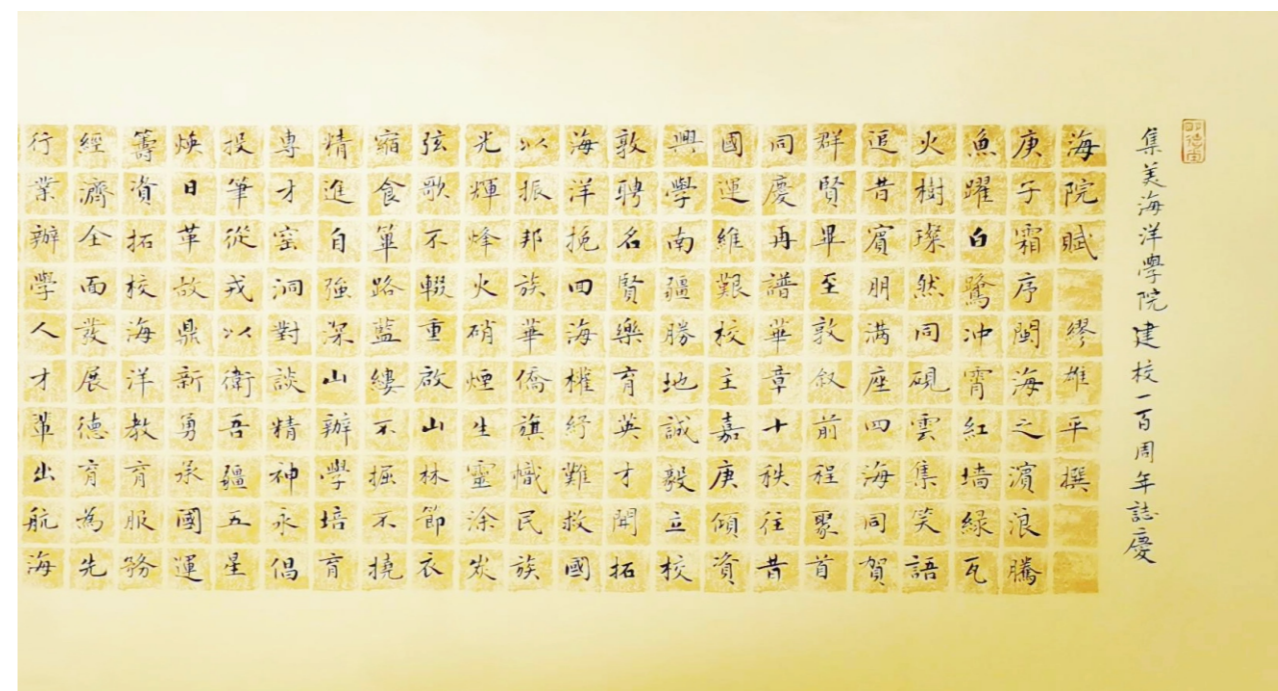 集美海洋學院建校一百周年誌慶
海院賦 繆雄平撰
庚子霜序閩海之濱浪騰
魚躍白鷺沖霄紅墙緑瓦
火樹璨然同硯雲集笑語
追昔賓朋满座四海同賀
群賢畢至敦叙前程聚首
同慶再譜華章十秩往昔
國運維艱校主嘉庚傾資
興學南疆勝地誠毅立校
敦聘名賢樂育英才開拓
海洋挽四海權紓難救國
以振邦族華僑旗幟民族
光輝烽火硝煙生靈涂炭
弦歌不輟重啟山林節衣
縮食篳路藍縷不掘不撓
精進自強深山辦學培育
專才窑洞對談精神永倡
投筆從戎以衛吾疆五星
焕日革故鼎新勇承國運
籌資拓校海洋教育服務
經濟全面發展德育為先
行業辦學人才輩出航海